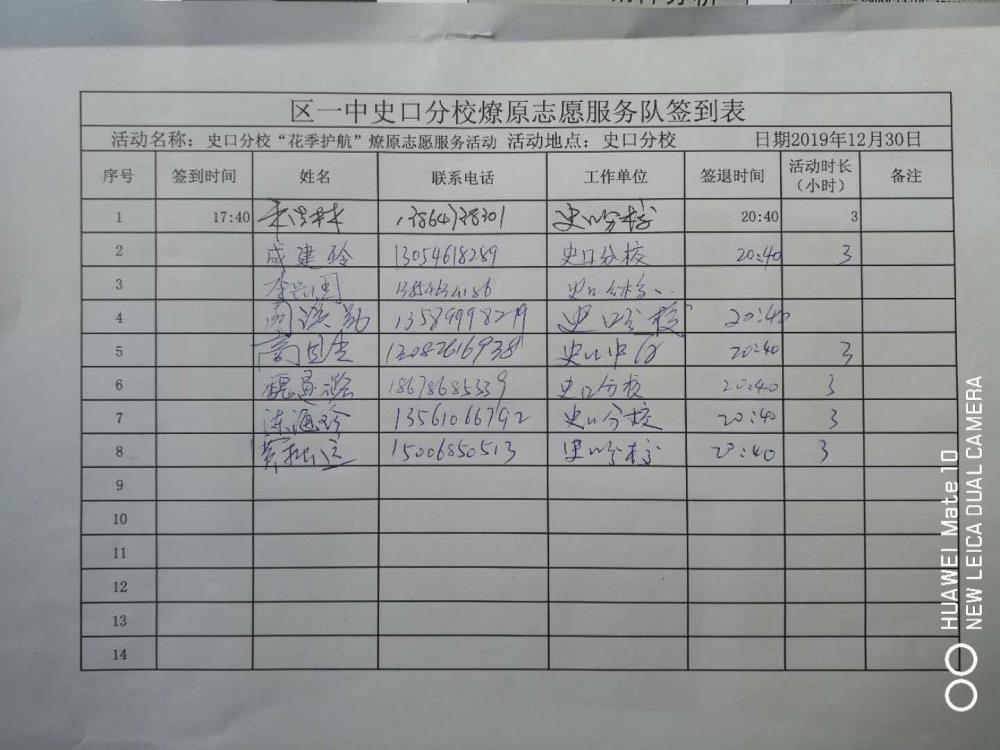 区一中史口分校燎原志愿服务队签到表
活动名称：史口分校“花季护航”燎原志愿服务活动 活动地点：史口分校 日期2019年12月30日
序号 签到时间 姓名 联系电话 工作单位 签退时间 活动时长（小时） 备注
1 17:40 史口分校 20:40 3
2 成建玲 13054618289 史口分校 20:40 3
3 李兴国 史口分校
4 史口分校 20:40
5 13082616938 20:40 3
6 18678685339 史口分校 20:40 3
7 陈海玲 13561066792 史口分校 20:40 3
8 15006850513 史口分校 20:40 3
9
10
11
12
13
14
HUAWEI Mate 10
NEW LEICA DUAL CAMERA